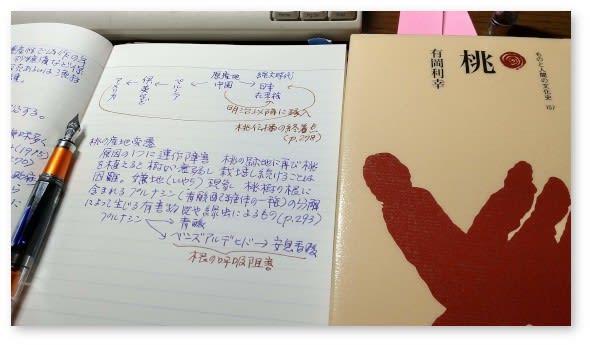 原産地
中国
縄文時代
日本
在来核
ペルシア
アメリカ
明治以降に導入
桃伝播の終着点
(p.298)
桃の産地変遷
原因の1つに連作障害 桃の跡地に再び桃
を植えると樹が衰弱し栽培し続けることは
困難。嫌地(いやち)現象 桃樹の根に
含まれるプルナシン(青酸配糖体の一種)の分解
によって生じる有害物質や線虫によるもの(p.293)
プルナシン
青酸
ベンズアルデヒド→安息香酸
根の呼吸阻害
桃
有岡利幸
ものと人間の文化史
157